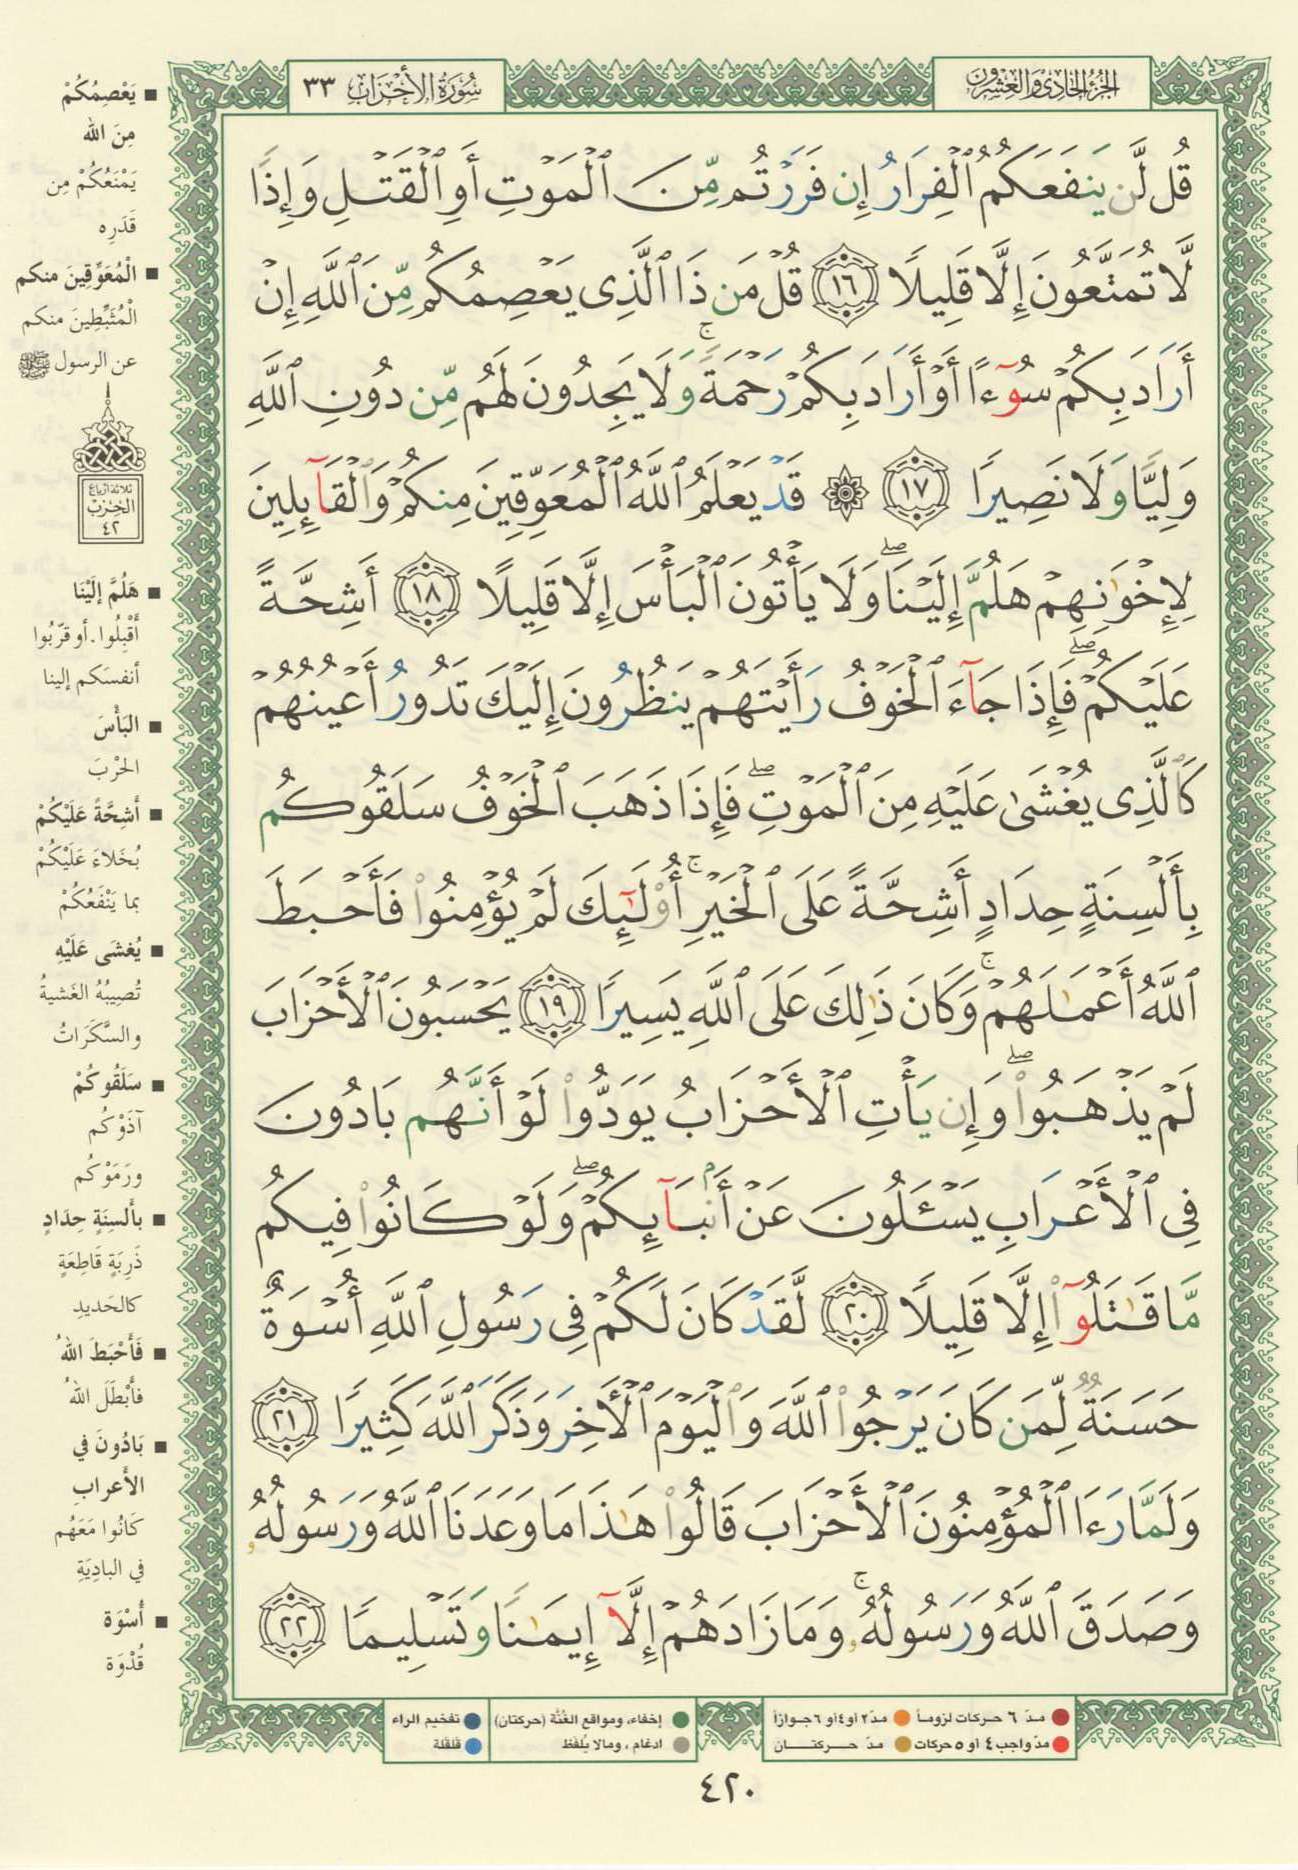 الجزء الحادي والعشرون
سورة الأحزاب ٣٣
قُل لَّن يَنفَعَكُمُ ٱلْفِرَارُ إِن فَرَرْتُم مِّنَ ٱلْمَوْتِ أَوِ ٱلْقَتْلِ وَإِذًا
لَّا تُمَتَّعُونَ إِلَّا قَلِيلًا ١٦ قُلْ مَن ذَا ٱلَّذِى يَعْصِمُكُم مِّنَ ٱللَّهِ إِنْ
أَرَادَ بِكُمْ سُوٓءًا أَوْ أَرَادَ بِكُمْ رَحْمَةً ۚ وَلَا يَجِدُونَ لَهُم مِّن دُونِ ٱللَّهِ
وَلِيًّا وَلَا نَصِيرًا ١٧ ۞ قَدْ يَعْلَمُ ٱللَّهُ ٱلْمُعَوِّقِينَ مِنكُمْ وَٱلْقَآئِلِينَ
لِإِخْوَٰنِهِمْ هَلُمَّ إِلَيْنَا ۖ وَلَا يَأْتُونَ ٱلْبَأْسَ إِلَّا قَلِيلًا ١٨ أَشِحَّةً
عَلَيْكُمْ ۖ فَإِذَا جَآءَ ٱلْخَوْفُ رَأَيْتَهُمْ يَنظُرُونَ إِلَيْكَ تَدُورُ أَعْيُنُهُمْ
كَٱلَّذِى يُغْشَىٰ عَلَيْهِ مِنَ ٱلْمَوْتِ ۖ فَإِذَا ذَهَبَ ٱلْخَوْفُ سَلَقُوكُم
بِأَلْسِنَةٍ حِدَادٍ أَشِحَّةً عَلَى ٱلْخَيْرِ ۚ أُو۟لَٰٓئِكَ لَمْ يُؤْمِنُوا۟ فَأَحْبَطَ
ٱللَّهُ أَعْمَٰلَهُمْ ۚ وَكَانَ ذَٰلِكَ عَلَى ٱللَّهِ يَسِيرًا ١٩ يَحْسَبُونَ ٱلْأَحْزَابَ
لَمْ يَذْهَبُوا۟ ۖ وَإِن يَأْتِ ٱلْأَحْزَابُ يَوَدُّوا۟ لَوْ أَنَّهُم بَادُونَ
فِى ٱلْأَعْرَابِ يَسْـَٔلُونَ عَنْ أَنۢبَآئِكُمْ ۖ وَلَوْ كَانُوا۟ فِيكُم
مَّا قَٰتَلُوٓا۟ إِلَّا قَلِيلًا ٢٠ لَّقَدْ كَانَ لَكُمْ فِى رَسُولِ ٱللَّهِ أُسْوَةٌ
حَسَنَةٌ لِّمَن كَانَ يَرْجُوا۟ ٱللَّهَ وَٱلْيَوْمَ ٱلْأَخِرَ وَذَكَرَ ٱللَّهَ كَثِيرًا ٢١
وَلَمَّا رَءَا ٱلْمُؤْمِنُونَ ٱلْأَحْزَابَ قَالُوا۟ هَٰذَا مَا وَعَدَنَا ٱللَّهُ وَرَسُولُهُۥ
وَصَدَقَ ٱللَّهُ وَرَسُولُهُۥ ۚ وَمَا زَادَهُمْ إِلَّآ إِيمَٰنًا وَتَسْلِيمًا ٢٢
■ يَعْصِمُكُمْ
مِنَ الله
يَمْنَعُكُمْ مِن
قَدَرِه
■ الْمُعَوِّقِينَ منكم
الْمُثَبِّطِينَ منكم
عن الرسول ﷺ
ثلاثة أرباع
الحزب
٤٢
■ هَلُمَّ إلَيْنَا
أقْبِلُوا. أو قرّبُوا
أنفسَكم إلينا
■ البَأْسَ
الحَرْبَ
■ أَشِحَّةً عَلَيْكُمْ
بُخَلاءَ عَلَيْكُمْ
بما يَنْفَعُكُمْ
■ يُغشَى عَلَيْهِ
تُصِيبُهُ الغَشيةُ
والسَّكَرَاتُ
■ سَلَقُوكُمْ
آذَوْكُم
ورَمَوْكُم
■ بأَلسِنَةٍ حِدَادٍ
ذَرِبَةٍ قَاطِعَةٍ
كالحَديدِ
■ فَأَحْبَطَ اللهُ
فأَبْطَلَ اللهُ
■ بَادُونَ في
الأَعراب
كَانُوا مَعَهُم
في البادِيَةِ
■ أُسْوَة
قُدْوَة
مدّ ٦ حركات لزوماً مدّ ٢ أو ٤ أو ٦ جوازاً
مدّ واجب ٤ أو ٥ حركات مدّ حركتان
إخفاء، ومواقع الغُنَّة (حركتان) تفخيم الراء
ادغام، ومالا يُلفَظ قلقلة
٤٢٠